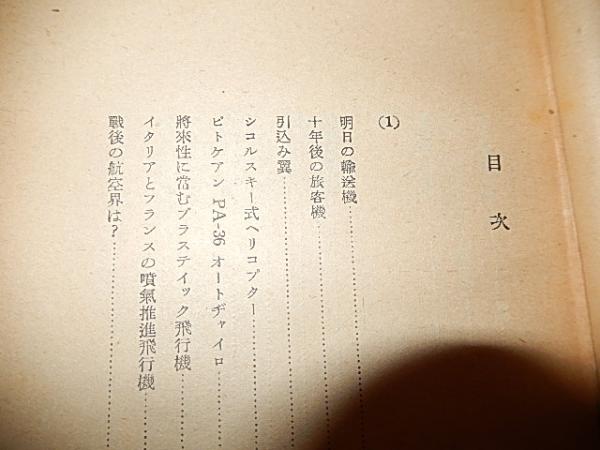 目次
(1)
明日の輸送機
十年後の旅客機
引込み翼
シコルスキー式ヘリコプター
ピトケアン PA-36 オートヂャイロ
將來性に富むプラスティック飛行機
イタリアとフランスの噴氣推進飛行機
戰後の航空界は?